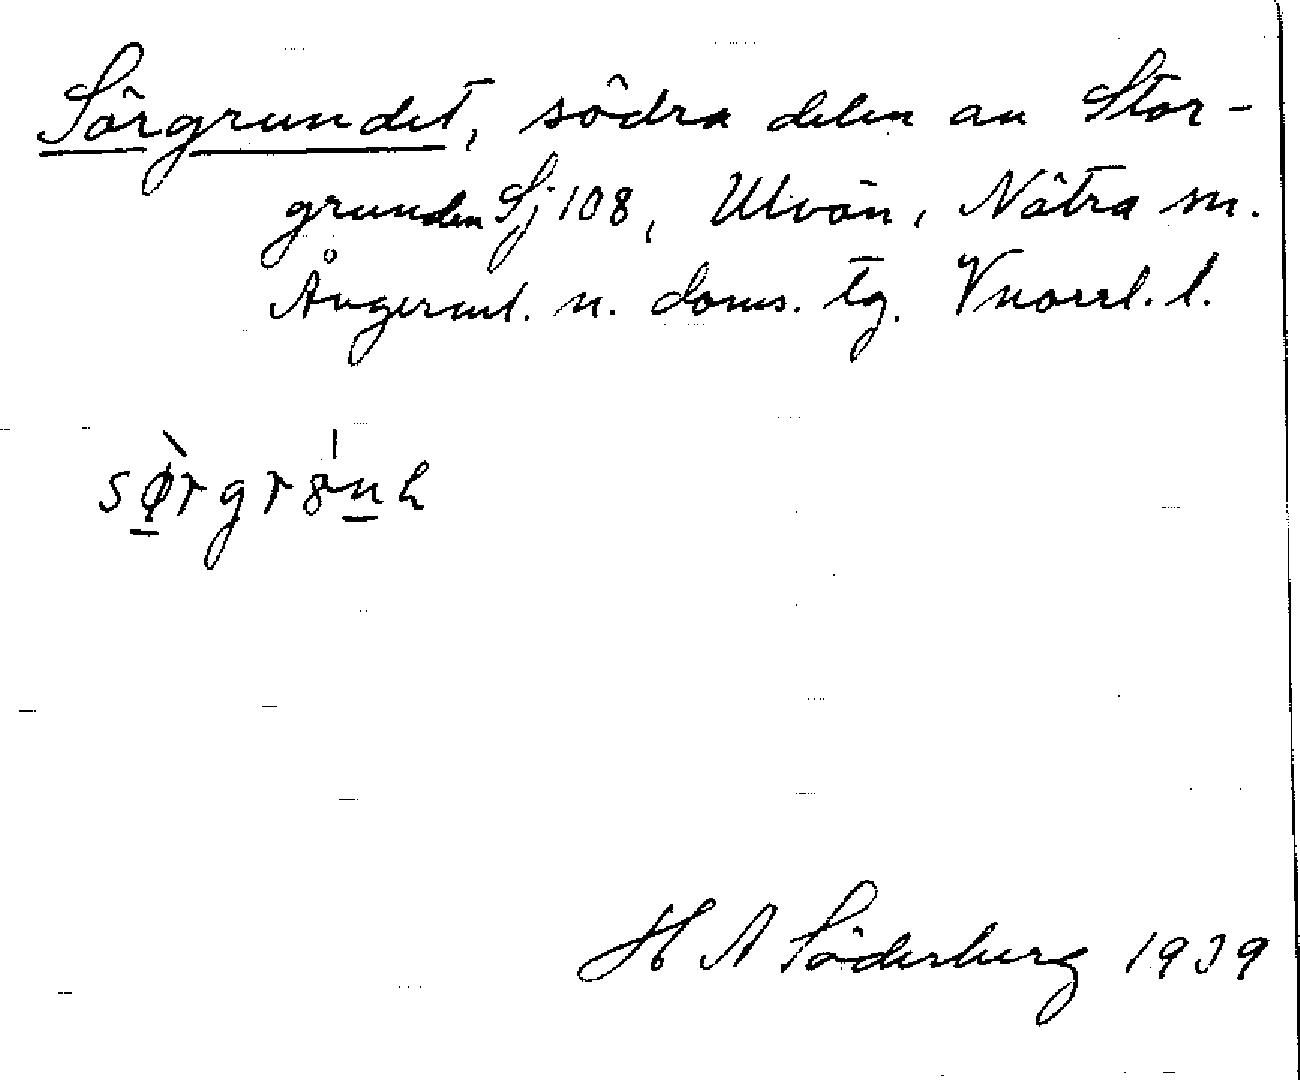 Sörgrundet, södra delen av Stor-
grunden Sj 108, Ulvön, Nätra sn.
Ångerml. n. doms. tg. Vnorrl. l.
H A Söderberg 1939